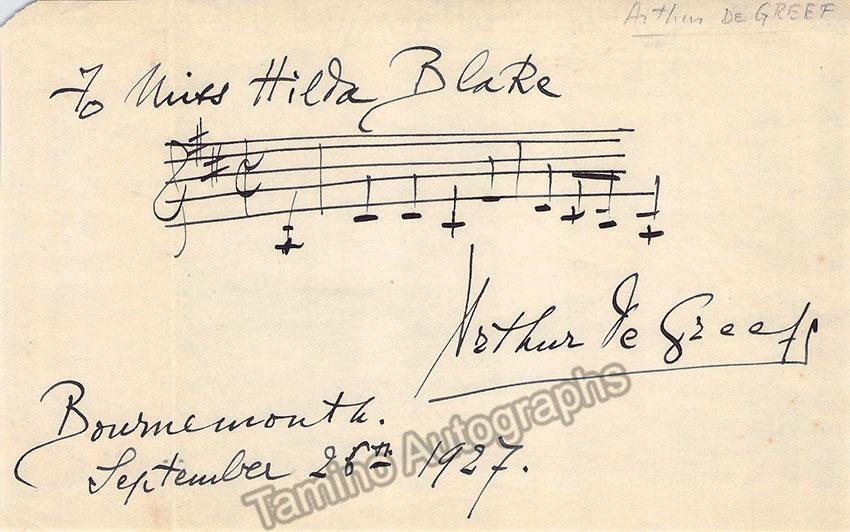 Arthur De GREEF
To Miss Hilda Blake
Arthur De Greef
Bournemouth.
September 28th 1927.
Tamino Autographs